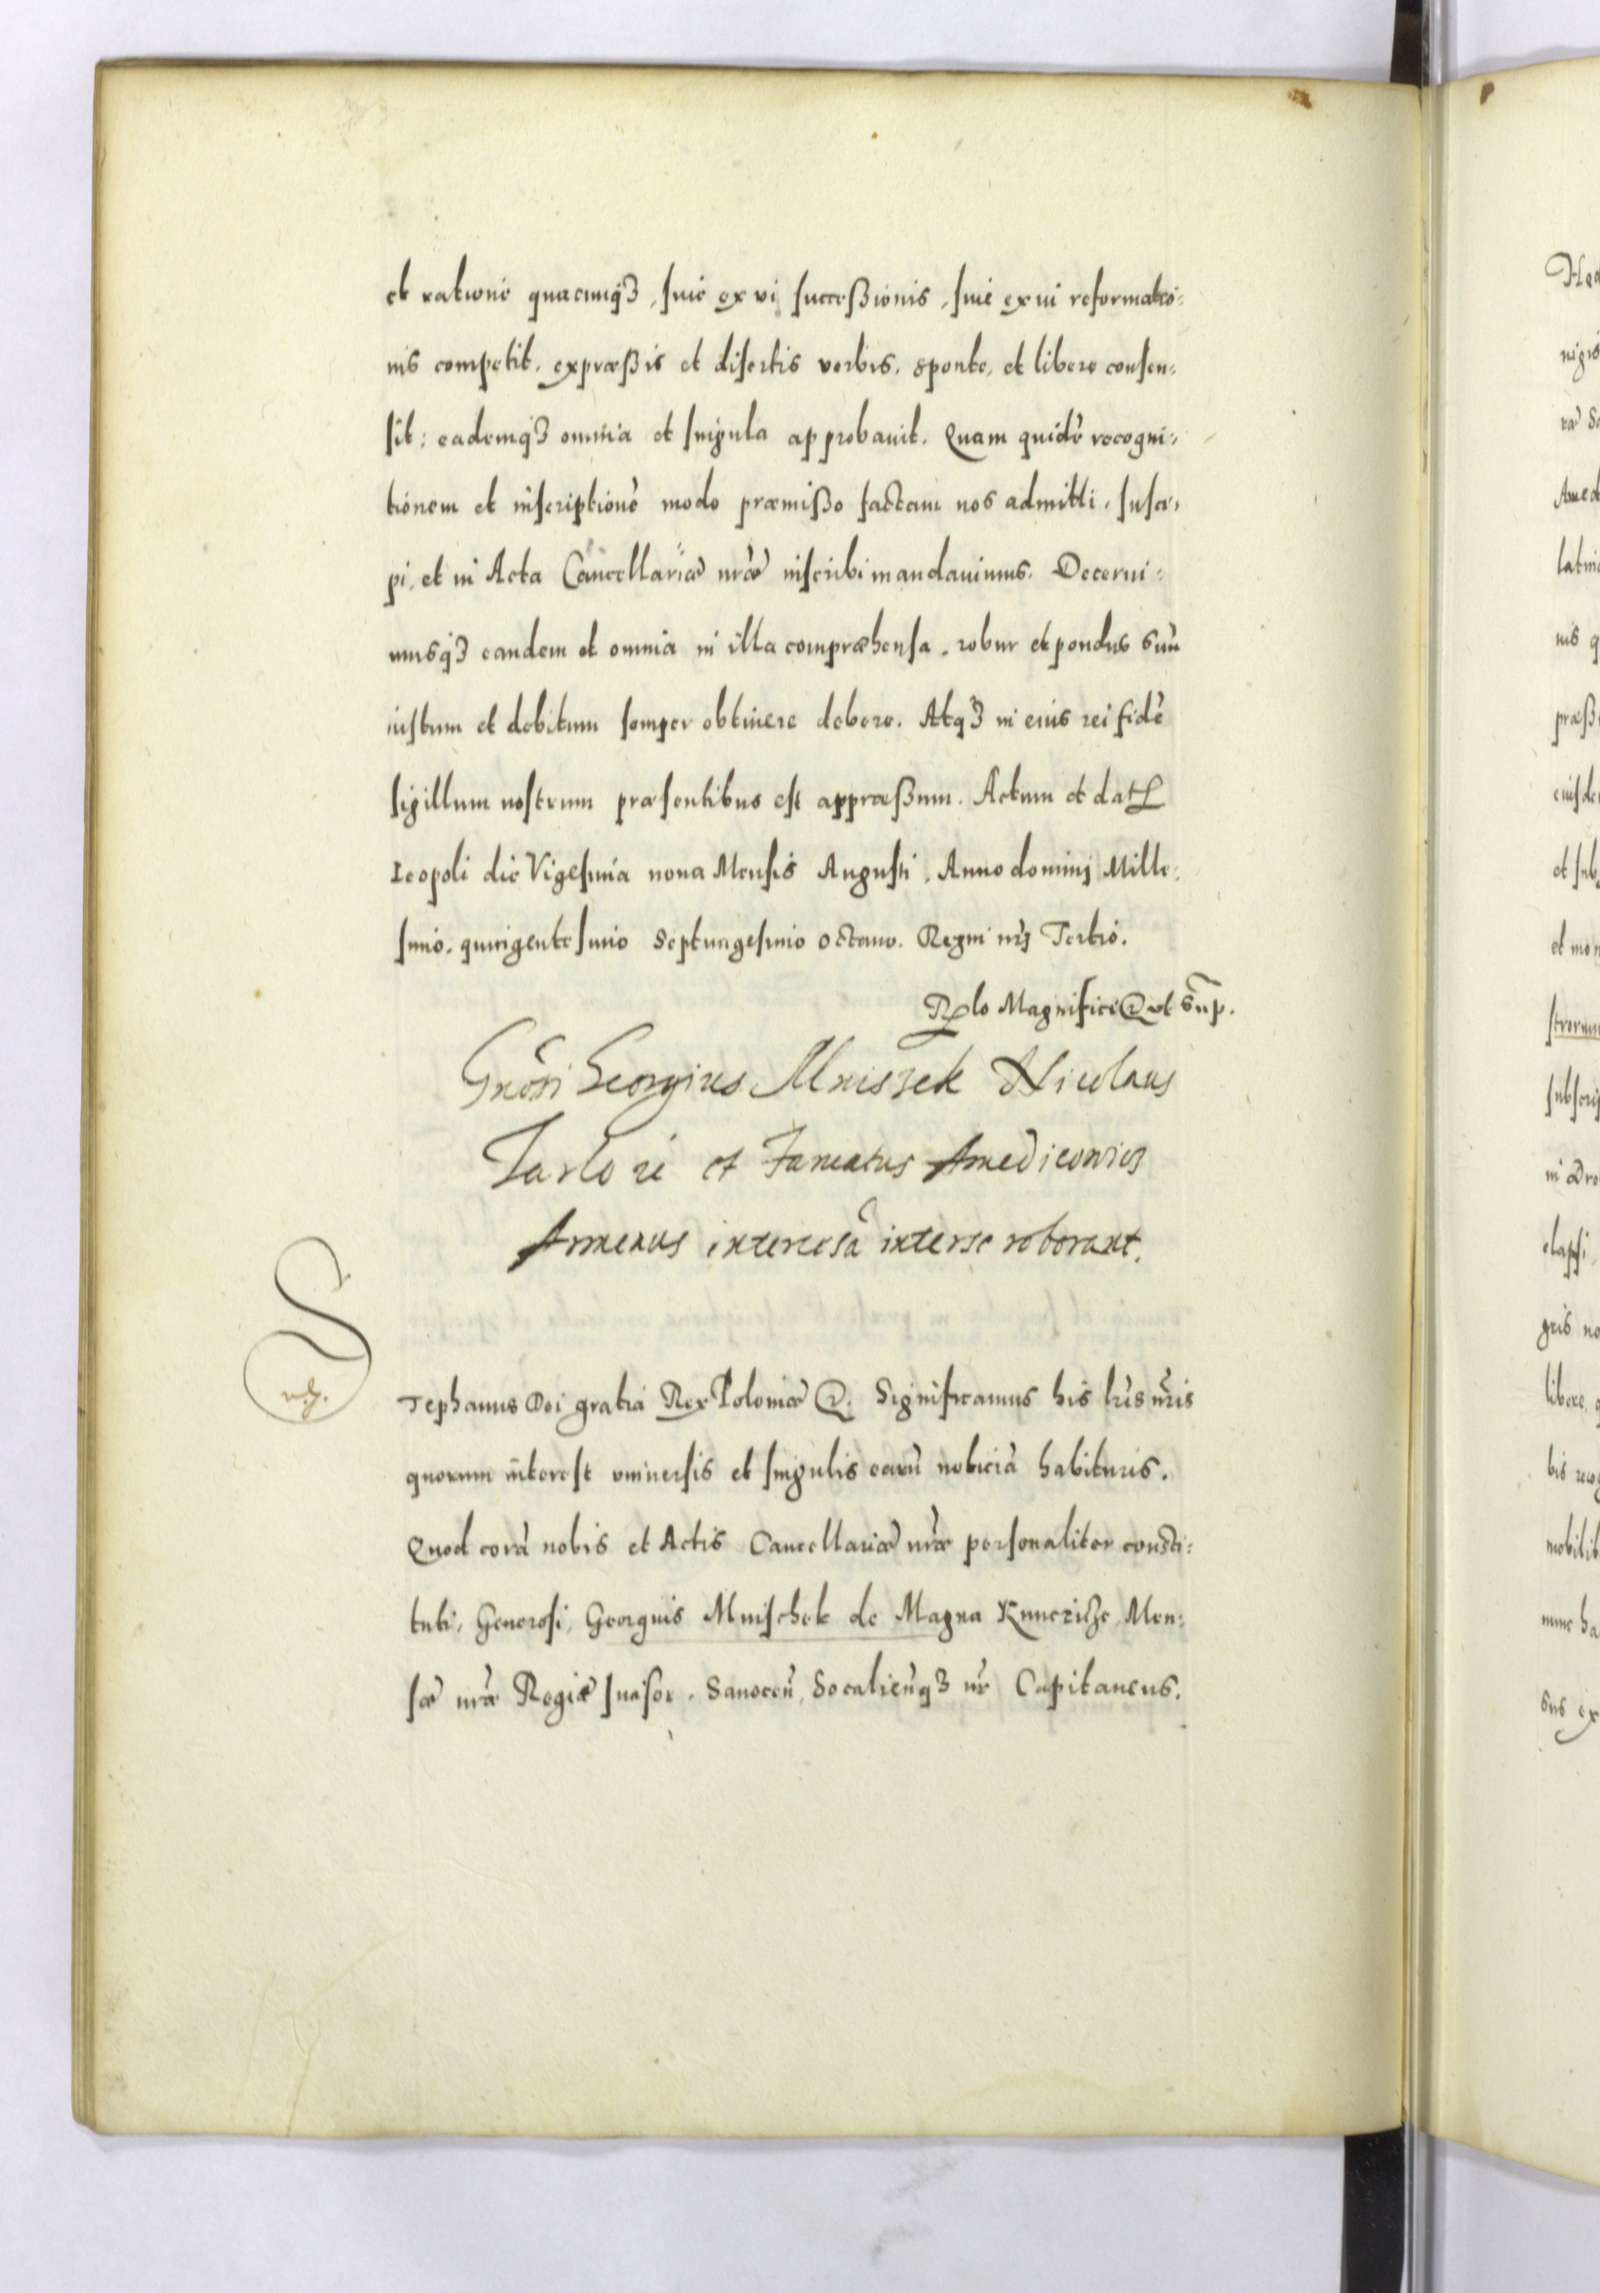 et ratione quacunqꝫ, siue ex vi successionis, siue ex ui reformatio-
nis competit. expræssis et disertis verbis, sponte, et libere consen-
sit: eademqꝫ omnia et singula approbauit. Quam quidē recogni-
tionem et inscriptionē modo præmisso factam nos admitti, susci-
pi, et in Acta Cancellariæ nr̄æ inscribi mandauimus. Decerni-
musqꝫ eandem et omnia in illa compræhensa, robur et pondus suū
iustum et debitum semper obtinere debere. Atqꝫ in eius rei fidē
sigillum nostrum præsentibus est appræssum. Actum et dat
Leopoli die Vigesima nona Mensis Augusti, Anno domini Mille-
simo, quingentesimo Septuagesimo octauo. Regni nrj Tertio.
Rlo Magnifici & vt sup.
Gnōsi Georgius Mniszek Nicolaus
Tarlo zė et Famatus Amedicowicz
Armenus intercisā inter se roborant.
Stephanus Dei gratia Rex Poloniæ &. Significamus his lr̄is nr̄is
quorum interest vniuersis et singulis earū noticiā habituris.
Quod corā nobis et Actis Cancellariæ nr̄æ personaliter consti-
tuti, Generosi, Georguis Mnischek de Magna Kunczicze, Men-
sæ nr̄æ Regiæ Incisor, Sanocen̄, Socalien̄qꝫ nr̄ Capitaneus.